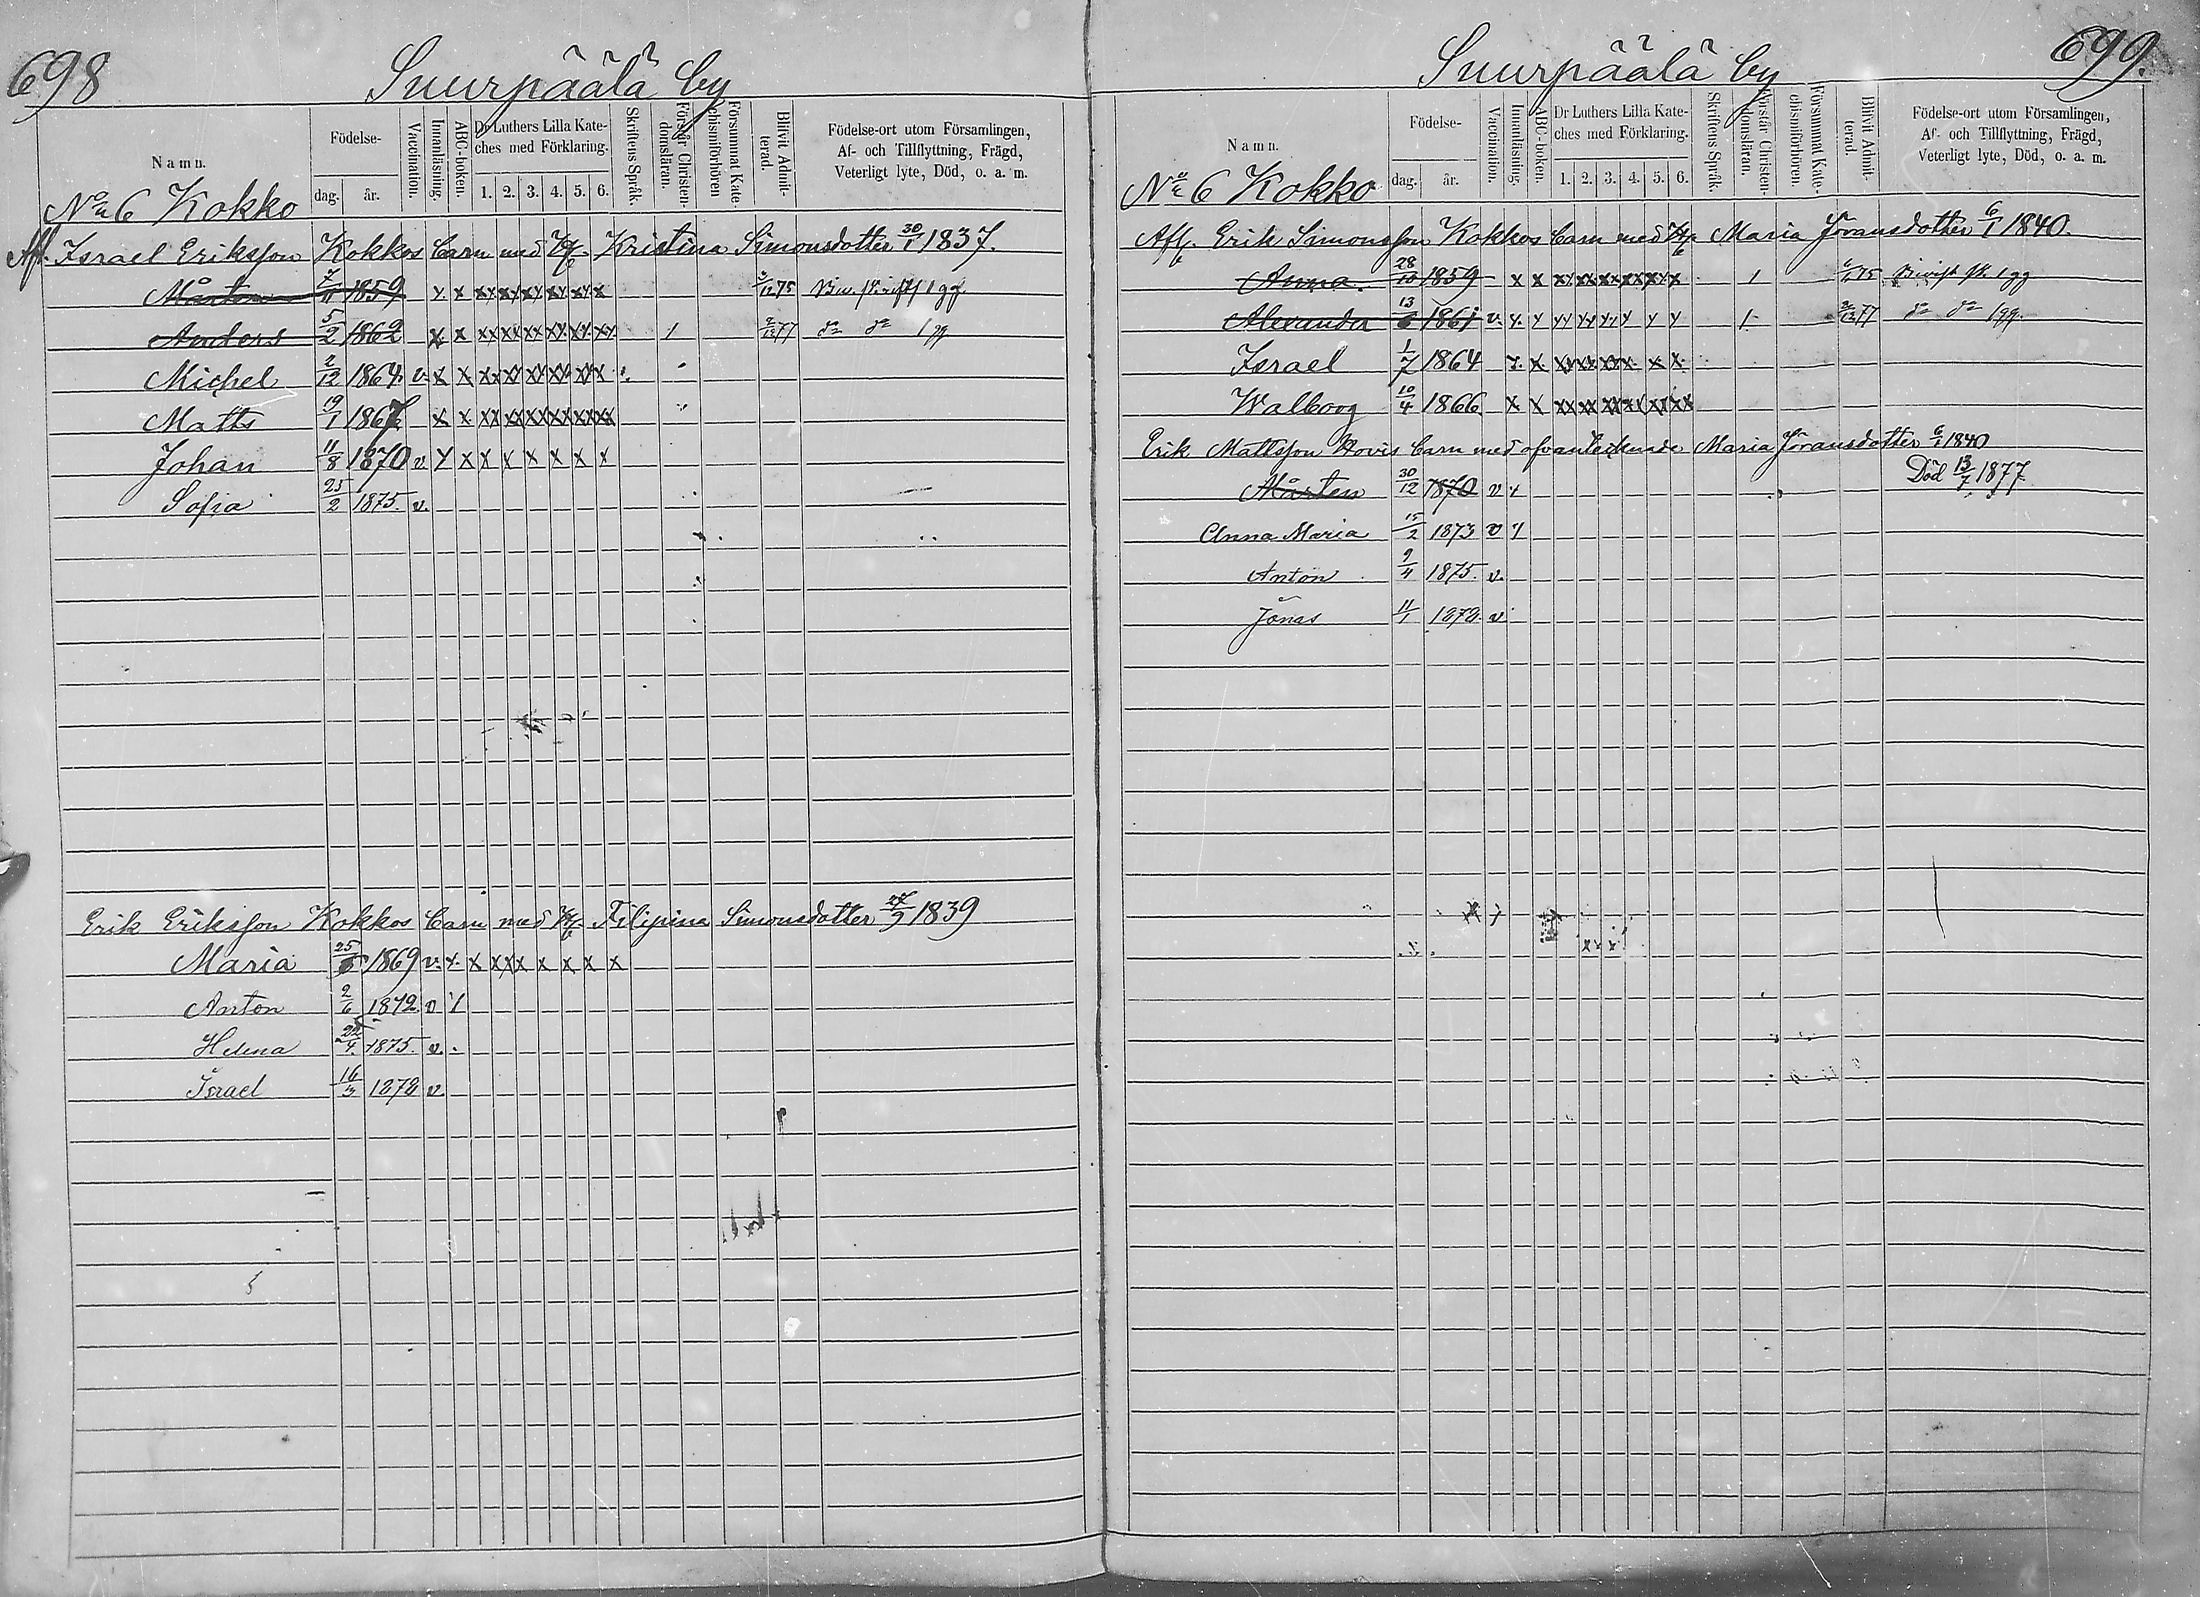 698
Suurpäälä by
Namn.
Födelse-
dag.
år.
Vaccination.
Innanläsning.
ABC-boken.
Dr Luthers Lilla Kate-
ches med Förklaring.
1. 2. 3. 4. 5. 6.
Skriftens Språk.
Förstår Christen-
domsläran.
Försummat Kate-
chismiförhören
Blifvit Admit-
terad.
Födelse-ort utom Församlingen,
Af- och Tillflyttning, Frägd,
Veterligt lyte, Död, o. a. m.
No 6 Kokko
Afl. Israel Eriksson Kokkos barn med H. Kristina Simonsdotter 30/1 1837.
Mårten 7/11 1859 x x xx xx xx xx xx x 3/12 75 1 gg
Anders 5/2 1862 x x xx xx xx xx xx xx 1 2/12 77 do do 1 gg
Michel 2/12 1864 v. x x xx xx xx xx xx x
Matts 19/1 1867 x x xx xx xx xx xx xx
Johan 11/8 1870 v x x x x x x x x
Sofia 25/2 1875. v.
Erik Eriksson Kokkos barn med H. Filipina Simonsdotter 27/9 1839
Maria 25/5 1869 v. x. x xx x x x x x
Anton 2/6 1872 v x
Helena 22/4. 1875. v.
Israel 16/3 1878 v
699.
Suurpäälä by
Namn.
Födelse-
dag.
år.
Vaccination.
Innanläsning.
ABC-boken.
Dr Luthers Lilla Kate-
ches med Förklaring.
1. 2. 3. 4. 5. 6.
Skriftens Språk.
Förstår Christen-
domsläran.
Försummat Kate-
chismiförhören.
Blifvit Admit-
terad.
Födelse-ort utom Församlingen,
Af- och Tillflyttning, Frägd,
Veterligt lyte, Död, o. a. m.
No 6 Kokko
Afl. Erik Simonsson Kokkos barn med H. Maria Jöransdotter 6/1 1840.
Anna. 28/10 1859 x x xx xx xx xx xx x 1 6/1 75 1 gg
Alexander 13/6 1861 v. x. x xx xx xx x x x 1 2/12 77 do do 1 gg.
Israel 1/7 1864 x. x. xx xx xx x. x. x.
Walborg 10/4 1866 x x xx xx xx xx xx xx
Erik Mattsson Hovis barn med ofvantecknade Maria Jöransdotter 6/1 1840
Mårten 30/12 1870 v x Död 13/7 1877.
Anna Maria 15/2 1873 v x
Anton 9/4 1875. v.
Jonas 11/1 1878. v